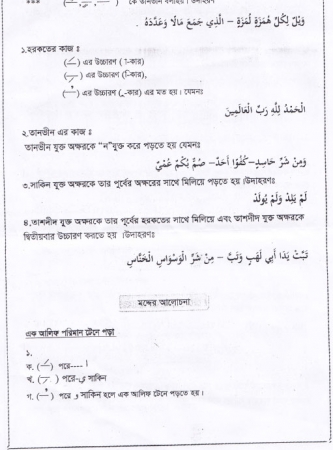 *** (—, —, —) কে তানভীন বলাহয়। উদাহরণ
وَيْلٌ لِكُلِّ هُمَزَةٍ لُمَزَةٍ – الَّذِي جَمَعَ مَالًا وَعَدَّدَهُ .
১.হরকতের কাজ ঃ
(َ) এর উচ্চারণ (া-কার)
(ِ) এর উচ্চারণ (ি-কার),
(ُ) এর উচ্চারণ (ু-কার) এর মত হয়। যেমনঃ
الْحَمْدُ لِلَّهِ رَبِّ الْعَالَمِينَ
২.তানভীন এর কাজ ঃ
তানভীন যুক্ত অক্ষরকে “ন”যুক্ত করে পড়তে হয় যেমনঃ
وَمِنْ شَرِّ حَاسِدٍ – كُفُوًا أَحَدٌ – صُمٌّ بُكْمٌ عُمْيٌ
৩.সাকিন যুক্ত অক্ষরকে তার পূর্বের অক্ষরের সাথে মিলিয়ে পড়তে হয়।উদাহরণঃ
لَمْ يَلِدْ وَلَمْ يُولَدْ
৪.তাশদীদ যুক্ত অক্ষরকে তার পূর্বের হরকতের সাথে মিলিয়ে এবং তাশদীদ যুক্ত অক্ষরকে
দ্বিতীয়বার উচ্চারণ করতে হয় ।উদাহরণঃ
تَبَّتْ يَدَا أَبِي لَهَبٍ وَتَبَّ – مِنْ شَرِّ الْوَسْوَاسِ الْخَنَّاسِ
মদ্দের আলোচনা
এক আলিফ পরিমান টেনে পড়া
১.
ক. (َ) পরে---- ا
খ. (ِ) পরে-ي সাকিন
গ. (ُ) পরে و সাকিন হলে এক আলিফ টেনে পড়তে হয়।